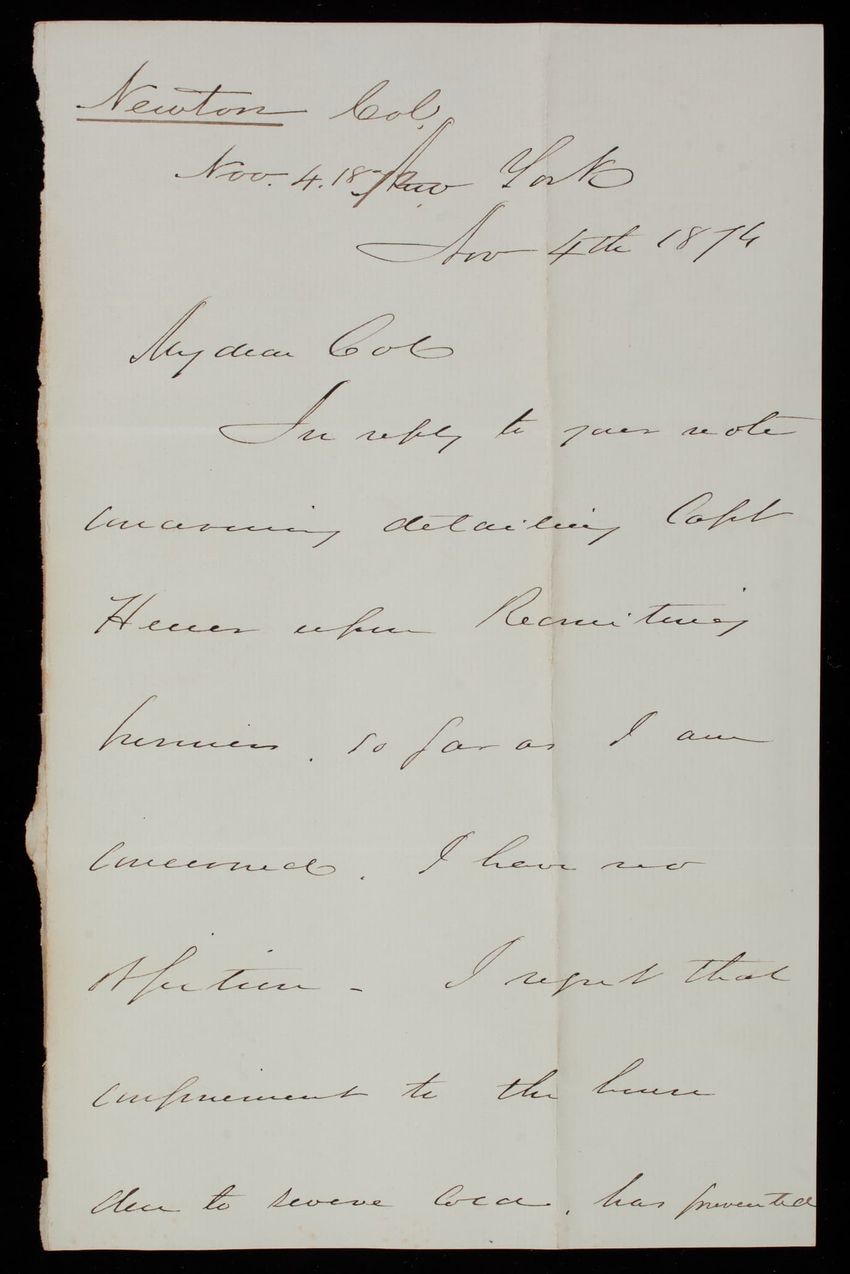 Newton Col.
Nov. 4. 1874.
New York
Nov 4th 1874
My dear Col
In reply to your note
concerning detailing Capt
Heuer upon Recruiting
service, so far as I am
concerned, I have no
objection - I regret that
confinement to the house
due to severe cold, has prevented